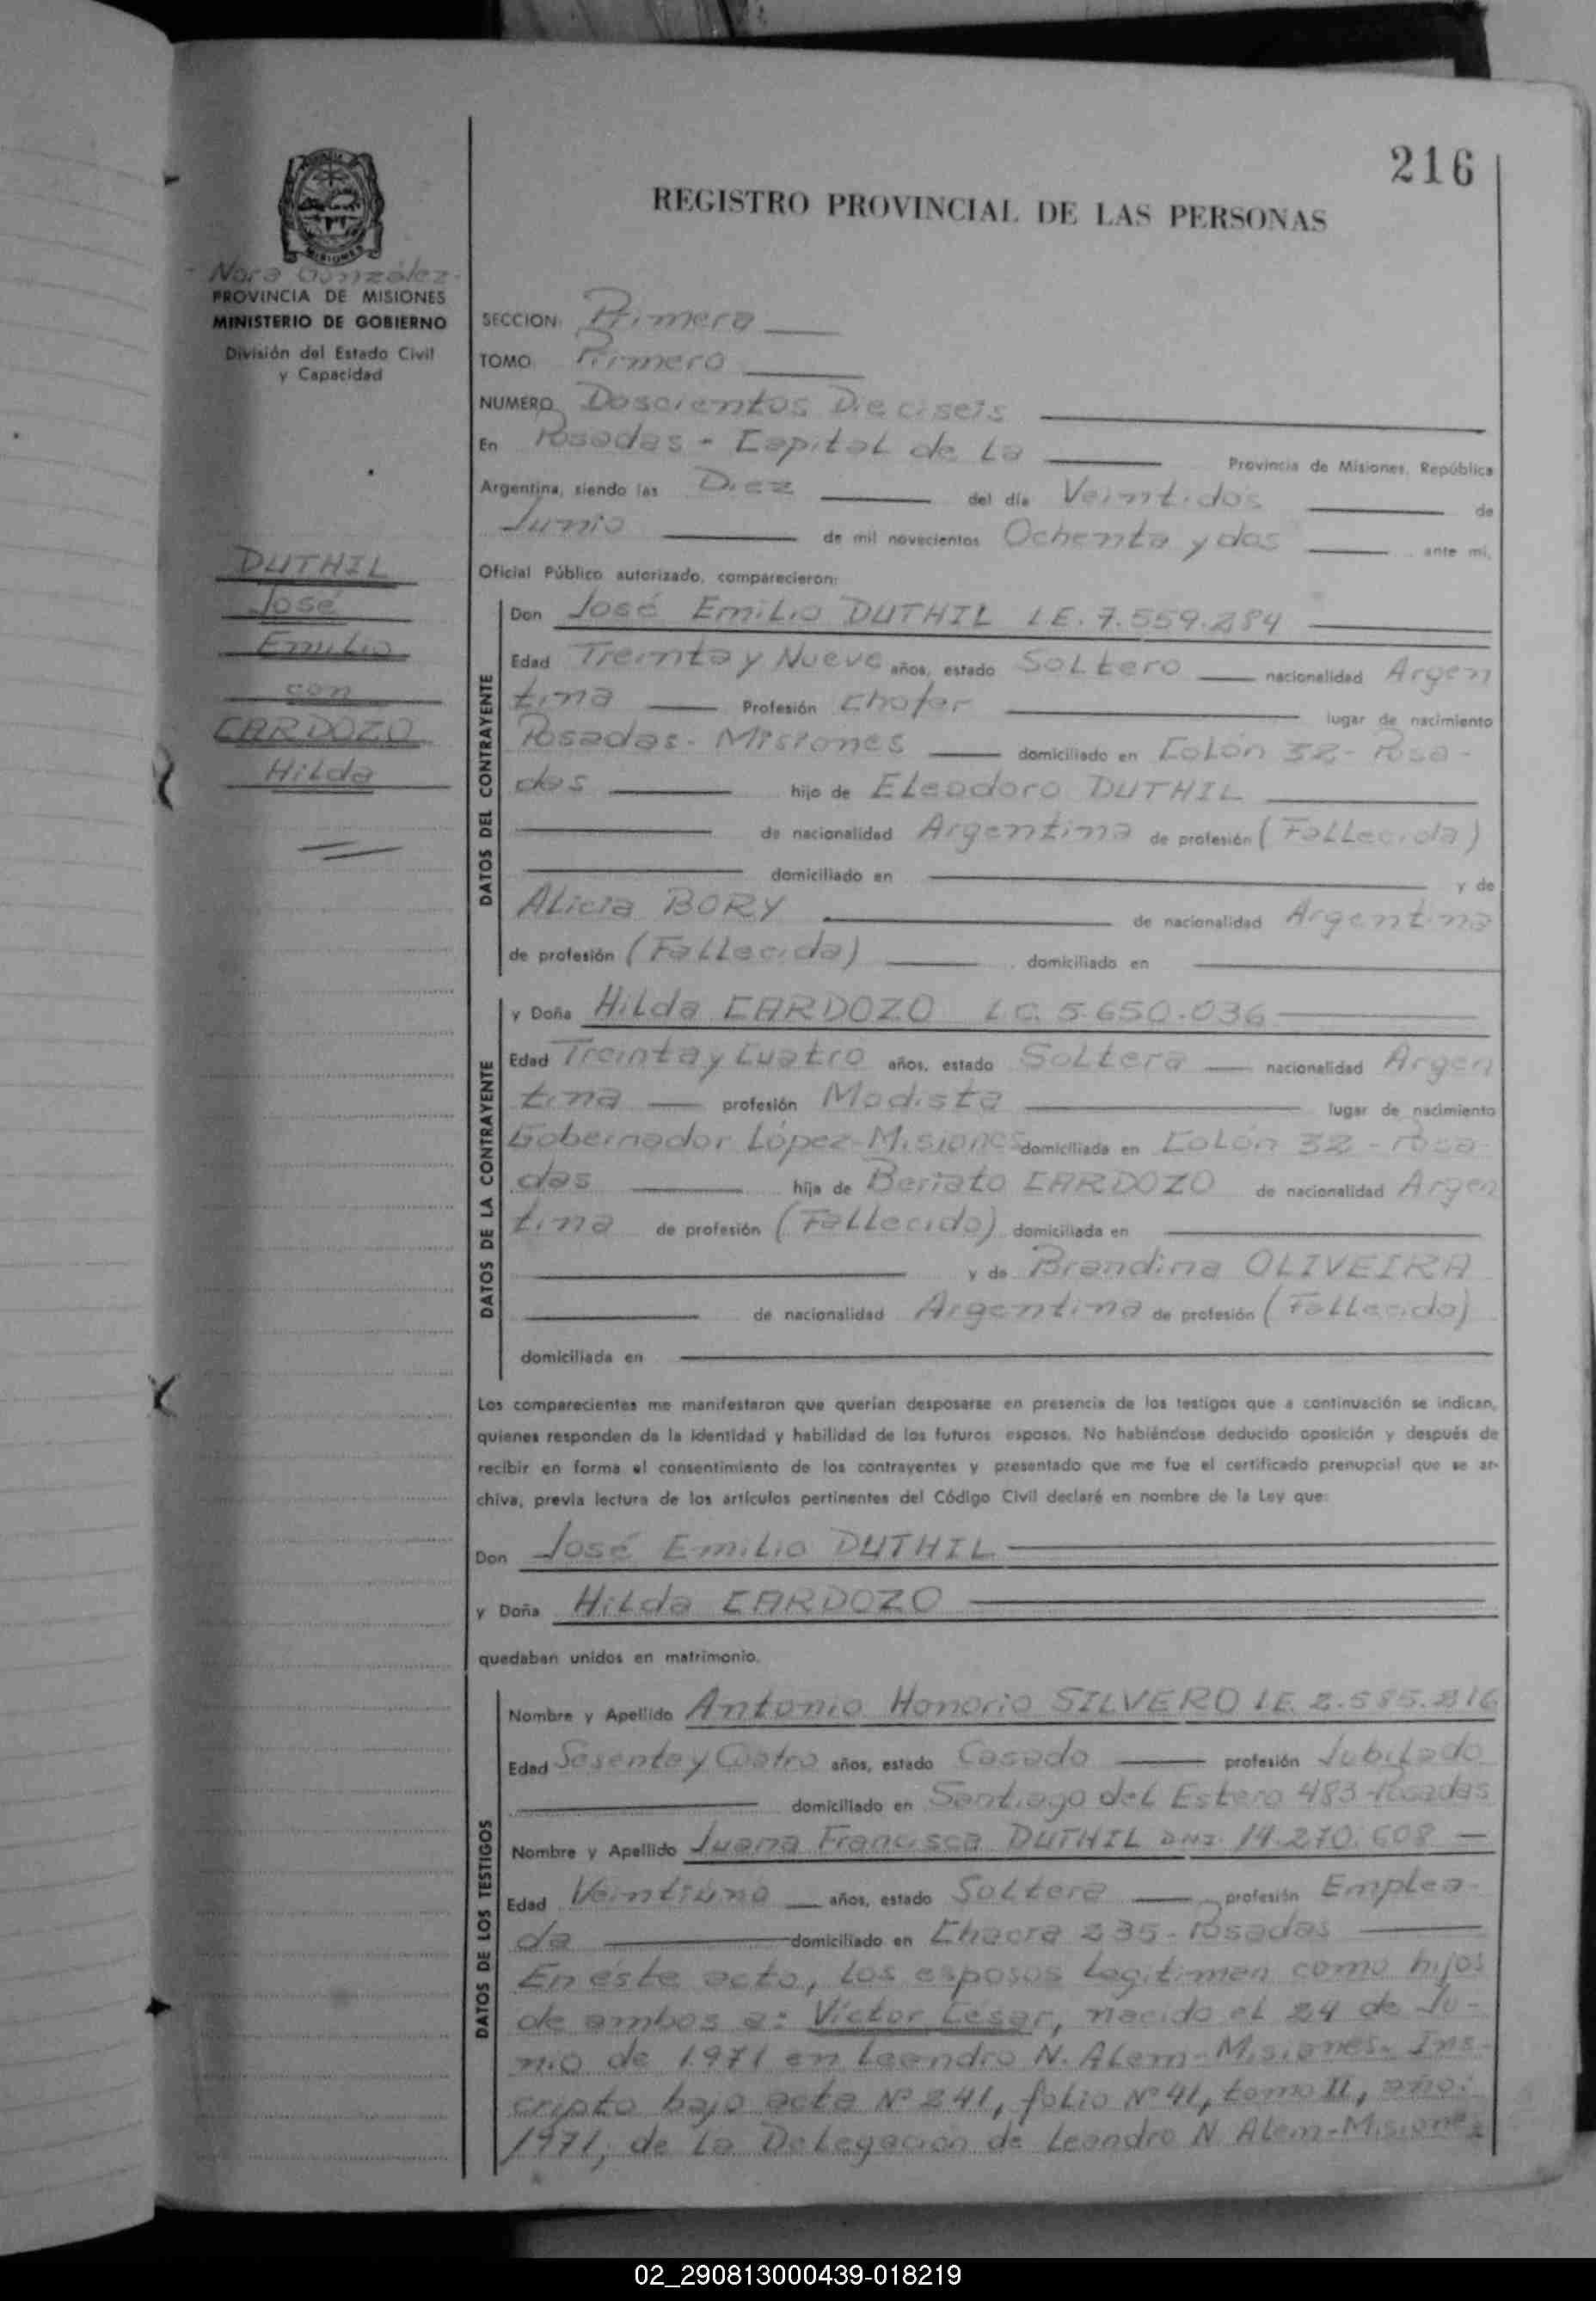 216
REGISTRO PROVINCIAL DE LAS PERSONAS
Nora González
PROVINCIA DE MISIONES
MINISTERIO DE GOBIERNO
División del Estado Civil
y Capacidad
SECCION: Primera
TOMO: Primero
NUMERO Doscientos Dieciseis
En Posadas - Capital de La Provincia de Misiones, República
Argentina, siendo las Diez del día Veintidos de
Junio de mil novecientos Ochenta y dos ante mí,
Oficial Público autorizado, comparecieron:
DUTHIL
José
Emilio
con
CARDOZO
Hilda
DATOS DEL CONTRAYENTE
Don José Emilio DUTHIL LE. 7.559.284
Edad Treinta y Nueve años, estado Soltero nacionalidad Argen
tina Profesión Chofer lugar de nacimiento
Posadas - Misiones domiciliado en Colón 32 - Posa-
das hijo de Eleodoro DUTHIL
de nacionalidad Argentina de profesión (Fallecida)
domiciliado en y de
Alicia BORY de nacionalidad Argentina
de profesión (Fallecida) domiciliado en
DATOS DE LA CONTRAYENTE
y Doña Hilda CARDOZO LC. 5.650.036
Edad Treinta y Cuatro años, estado Soltera nacionalidad Argen
tina profesión Modista lugar de nacimiento
Gobernador López-Misiones domiciliada en Colón 32 - Posa-
das hija de Beriato CARDOZO de nacionalidad Argen
tina de profesión (Fallecido) domiciliada en
y de Brandina OLIVEIRA
de nacionalidad Argentina de profesión (Fallecido)
domiciliada en
Los comparecientes me manifestaron que querían desposarse en presencia de los testigos que a continuación se indican,
quienes responden de la identidad y habilidad de los futuros esposos. No habiéndose deducido oposición y después de
recibir en forma el consentimiento de los contrayentes y presentado que me fue el certificado prenupcial que se ar-
chiva, previa lectura de los artículos pertinentes del Código Civil declaré en nombre de la Ley que:
Don José Emilio DUTHIL
y Doña Hilda CARDOZO
quedaban unidos en matrimonio.
DATOS DE LOS TESTIGOS
Nombre y Apellido Antonio Honorio SILVERO LE. 2.585.216
Edad Sesenta y Cuatro años, estado Casado profesión Jubilado
domiciliado en Santiago del Estero 483-Posadas
Nombre y Apellido Juana Francisca DUTHIL DNI. 14.270.608
Edad Veintiuno años, estado Soltera profesión Emplea-
da domiciliado en Chacra 235 - Posadas
En éste acto, los esposos legitiman como hijos
de ambos a: Víctor César, nacido el 24 de Ju-
nio de 1971 en Leandro N. Alem-Misiones. Ins-
cripto bajo acta Nº 241, folio Nº 41, tomo II, año:
1971, de la Delegación de Leandro N. Alem-Misiones
02_290813000439-018219